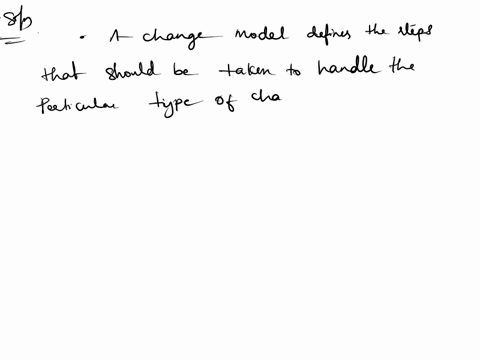 • A change model defines the steps
that should be taken to handle the
Particular type of cha